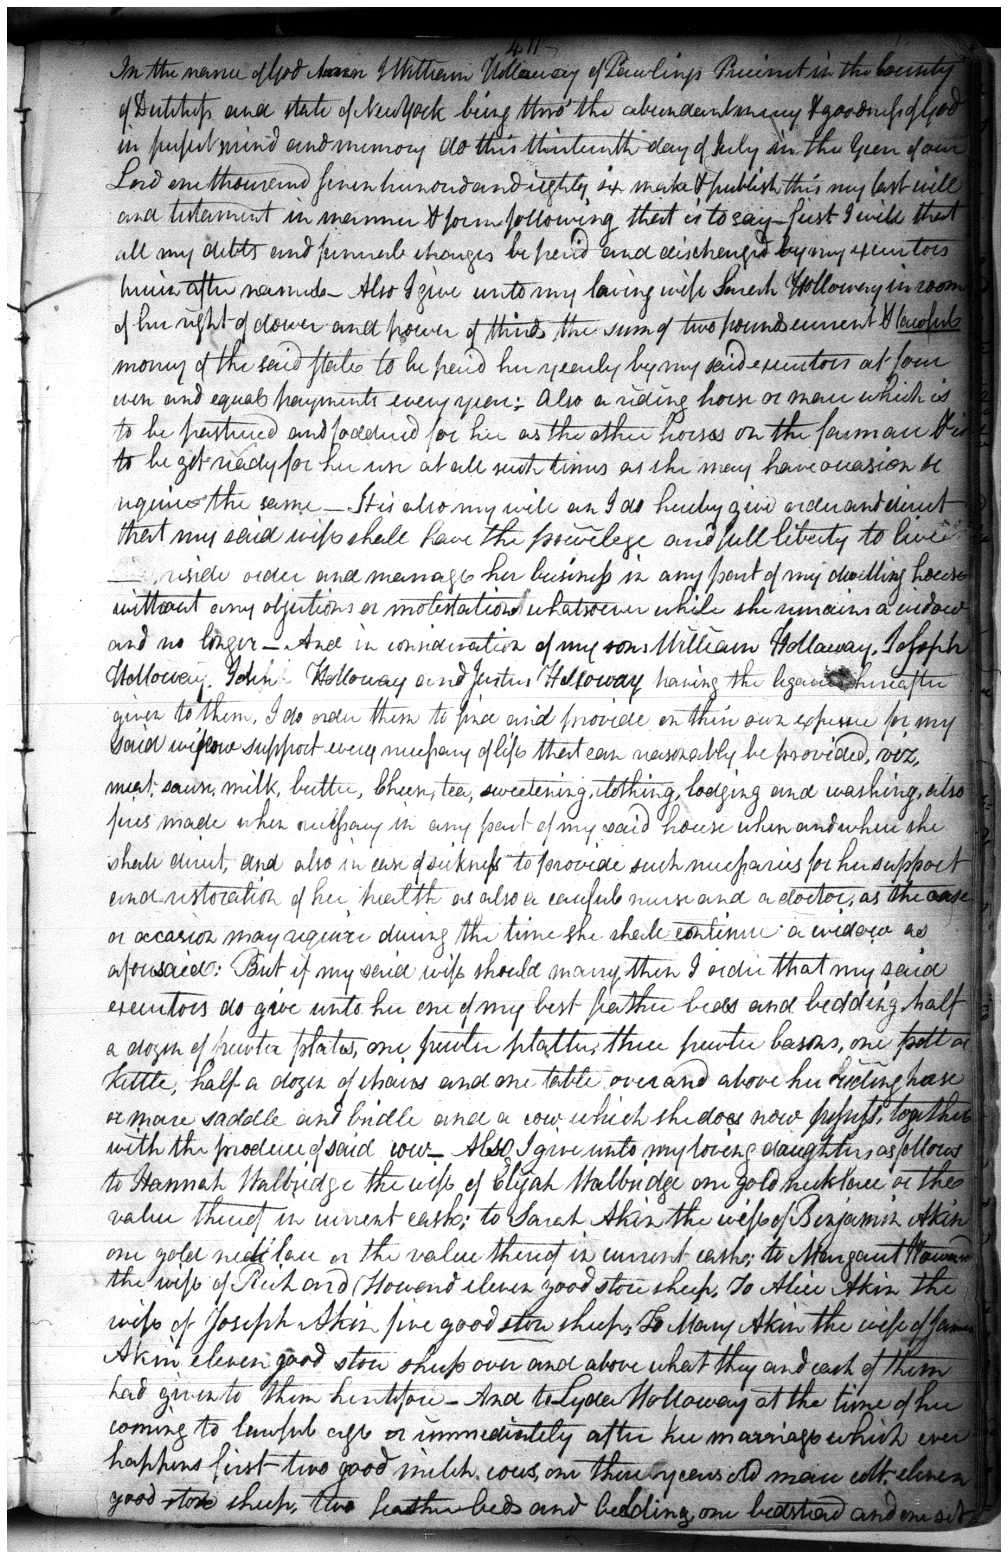 411
In the name of God Amen I William Hollaway of Pawlings Precinct in the County
of Dutchess and state of New York being thro' the abundant mercy & goodness of God
in perfect mind and memory do this thirteenth day of July in the Year of our
Lord one thousand seven hundred and eighty six make & publish this my last will
and testament in manner & form following that is to say first I will that
all my debts and funerele charges be paid and discharged by my executors
herein after named – Also I give unto my loving wife Sarah Holloway in room
of her right of dower and power of thirds the sum of two pounds current & lawful
money of the said state to be paid her yearly by my said executors at four
even and equal payments every year: Also a riding horse or mare which is
to be pastured and foddered for her as the other horses on the farm are & is
to be got ready for her use at all such times as she may have occasion or
require the same – It is also my will an I do hereby give order and direct
that my said wife shall have the privelege and full liberty to live
reside order and manage her business in any part of my dwelling house
without any objections or molestations whatsoever while she remains a widow
and no longer – And in consideration of my sons William Hollaway, Joseph
Holloway, John Holloway and Justus Holloway having the legacies hereafter
given to them, I do order them to find and provide on their own expense for my
said widow support every necessary of life that can reasonably be provided, viz,
meat, sause, milk, butter, Cheese, tea, sweetening, clothing, lodging and washing, also
fires made when necessary in any part of my said house when and where she
shall direct, and also in case of sickness to provide such necessaries for her support
and restoration of her health as also a careful nurse and a doctor, as the case
or occasion may require during the time she shall continue a widow as
aforesaid: But if my said wife should marry, then I order that my said
executors do give unto her one of my best feather beds and bedding, half
a dozen of pewter plates, one pewter platter, three pewter basons, one pott or
kettle, half a dozen of chairs and one table over and above her riding horse
or mare saddle and bridle and a cow which she does now possess, together
with the produce of said cow – Also I give unto my loving daughters as follows
to Hannah Walbridge the wife of Elijah Walbridge one gold necklace or the
value thereof in current cash; to Sarah Akin the wife of Benjamin Akin
one gold necklace or the value thereof in current cash; to Margaret Howard
the wife of Richard Howard eleven good store sheep, To Alice Akin the
wife of Joseph Akin five good store sheep, To Mary Akin the wife of James
Akin eleven good store sheep over and above what they and each of them
had given to them heretofore – And to Lyda Holloway at the time of her
coming to lawful age or immediately after her marriage which ever
happens first two good milch cows, one three years old mare colt eleven
good store sheep, two feather beds and bedding, one bedstead and one set